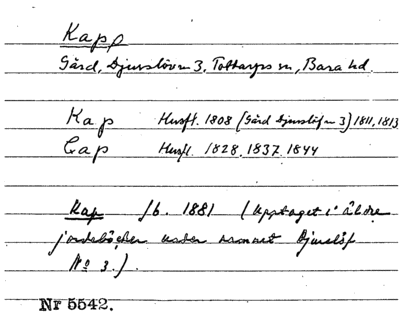 Kapp
Gård, Djurslöv n 3, Tottarps sn, Bara hd.
Kap Husft. 1808 (Gård Djurslöf n 3) 1811, 1813
Cap Husf. 1828, 1837, 1844
Kap Jb. 1881 (Upptaget i äldre
jordeböcker under namnet Djurslöf
No 3.)
Nr 5542.